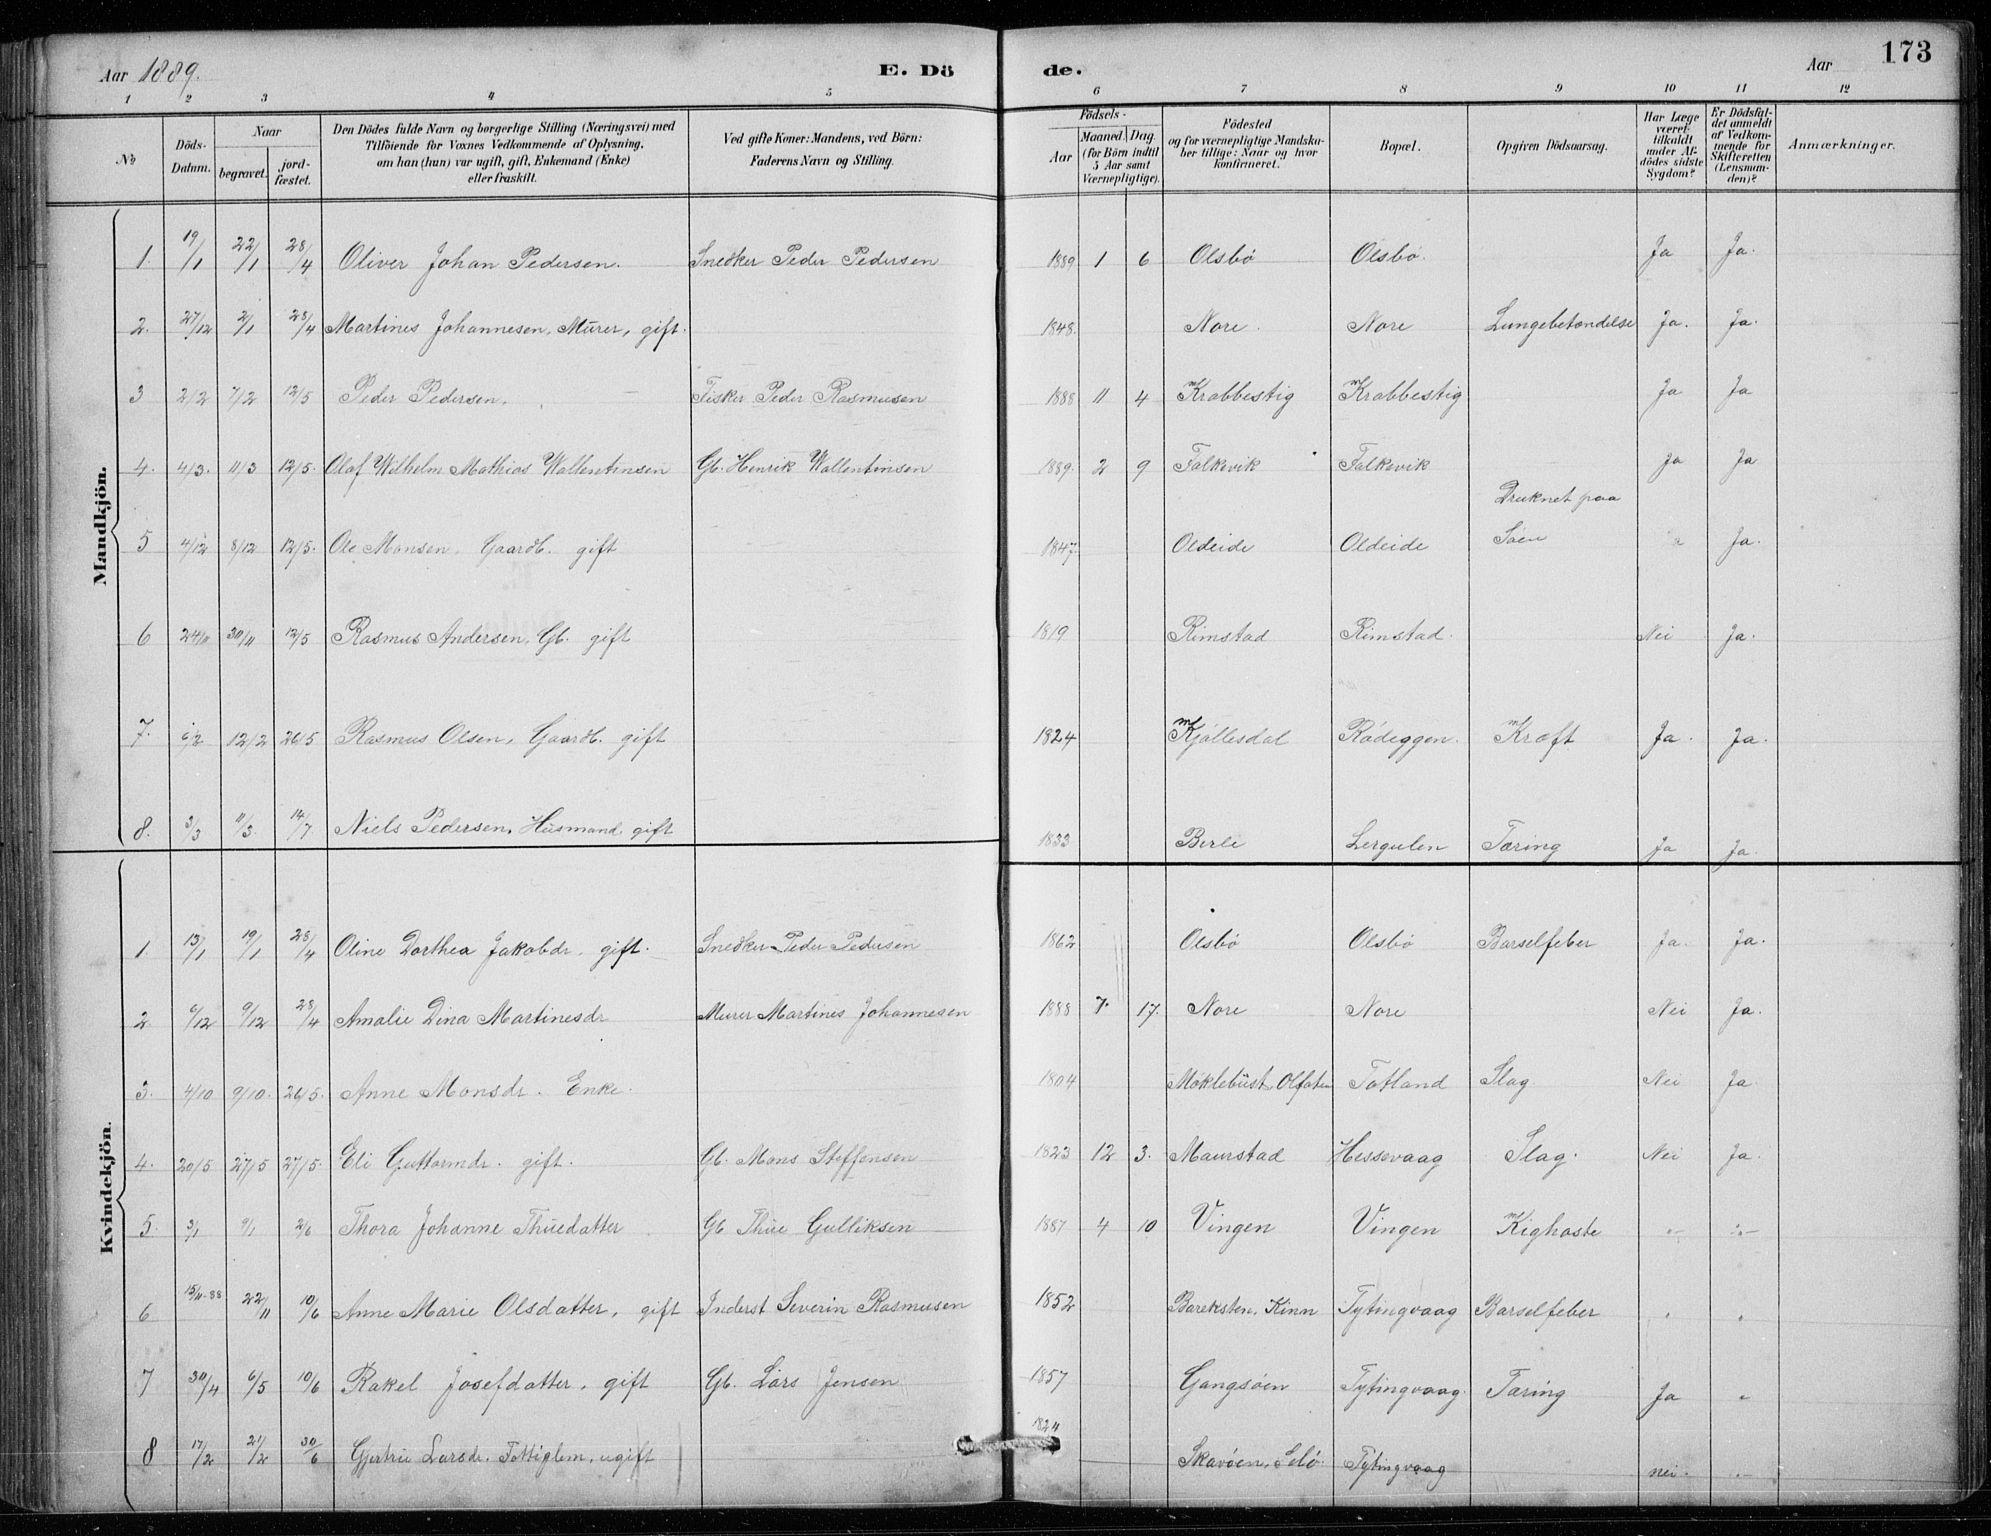 Aar 1889. E. Dö de. Aar 173
1 2 3 4 5 6 7 8 9 10 11 12
No
Döds-Datum.
Naar
begravet.
jord-fæstet.
Den Dödes fulde Navn og borgerlige Stilling (Næringsvei) med
Tilföiende for Voxnes Vedkommende af Oplysning,
om han (hun) var ugift, gift, Enkemand (Enke)
eller fraskilt.
Ved gifte Koner: Mandens, ved Börn:
Faderens Navn og Stilling.
Födsels-
Aar
Maaned. Dag.
(for Börn indtil
5 Aar samt
Værnepligtige).
Födested
og for værnepligtige Mandska-
ber tillige: Naar og hvor
konfirmeret.
Bopæl.
Opgiven Dödsaarsag.
Har Læge
været
tilkaldt
under Af-
dödes sidste
Sygdom?
Er Dödsfal-
det anmeldt
af Vedkom-
mende for
Skifteretten
(Lensman-
den)?
Anmærkninger.
Mandkjön.
1. 19/1 22/1 28/4 Oliver Johan Pedersen. Snedker Peder Pedersen 1889 1 6 Olsbø Olsbø. Ja Ja.
2. 27/12 2/1 28/4 Martines Johannesen, Murer, gift. 1848. Nore. Nore Lungebetændelse Ja. Ja.
3 2/2 7/2 12/5 Peder Pedersen. Fisker Peder Rasmusen 1888 11 4 Krabbestig Krabbestig Ja Ja
4. 4/3. 11/3 12/5. Olaf Wilhelm Mathias Wallentinsen Gb. Henrik Wallentinsen 1889. 2 9 Falkevik Falkevik Ja Ja
Druknet paa
5 4/12 8/12 12/5. Ole Monsen, Gaardb. gift 1847. Oldeide Oldeide Søen Ja.
6 24/11 30/11 12/5 Rasmus Andersen, Gb. gift 1819 Rimstad Rimstad. Nei Ja.
7. 6/2 12/2 26/5 Rasmus Olsen, Gaardb. gift 1824 Kjøllesdal Rødeggen. Kræft Ja. Ja.
8. 3/3 11/3. 14/7 Niels Pedersen, Husmand, gift 1833 Berle Lergulen Tæring Ja Ja.
Kvindekjön.
1. 13/1 19/1 28/4 Oline Dorthea Jakobdr. gift. Snedker Peder Pedersen 1862 Olsbø Olsbø Barselfeber Ja. Ja.
2 6/12 9/12 28/4 Amalie Dina Martinesdr Murer Martines Johannesen 1888 7. 17. Nore Nore Nei Ja.
3. 4/10 9/10. 26/5. Anne Monsdr. Enke. 1804 Møklebust, Olfoten Totland Slag Nei Ja
4. 20/5 27/5 27/5. Eli Guttormdr. gift. Gb. Mons Steffensen 1823 12 3. Maurstad Hessevaag Slag. Nei Ja.
5. 3/1 9/1 2/6 Thora Johanne Thuedatter Gb Thue Gulliksen 1887 4 10 Vingen Vingen Kighoste
6 15/11-88 22/11 10/6 Anne Marie Olsdatter, gift Inderst Severin Rasmusen 1852 Bareksten, Kinn Tytingvaag Barselfeber
7 30/4 6/5 10/6 Rakel Josefdatter, gift Gb. Lars Jensen 1857 Gangsøen Tytingvaag. Tæring Ja
8 17/2 21/2 30/6 Gjertrue Larsdr. Fattiglem, ugift 1824 Skavøen, Selø. Tytingvaag nei.